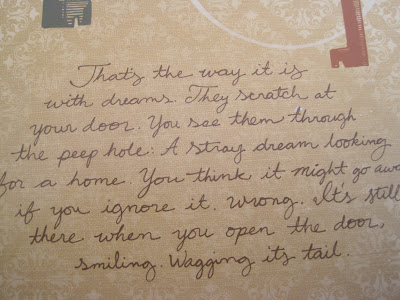 That's the way it is
with dreams. They scratch at
your door. You see them through
the peep hole: A stray dream looking
for a home. You think it might go away
if you ignore it. Wrong. It's still
there when you open the door,
smiling. Wagging its tail.